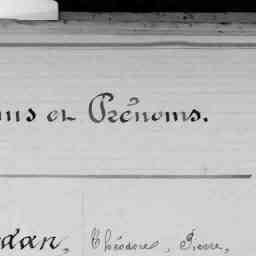 ms et Prénoms.
dan, Théodore, Pierre,